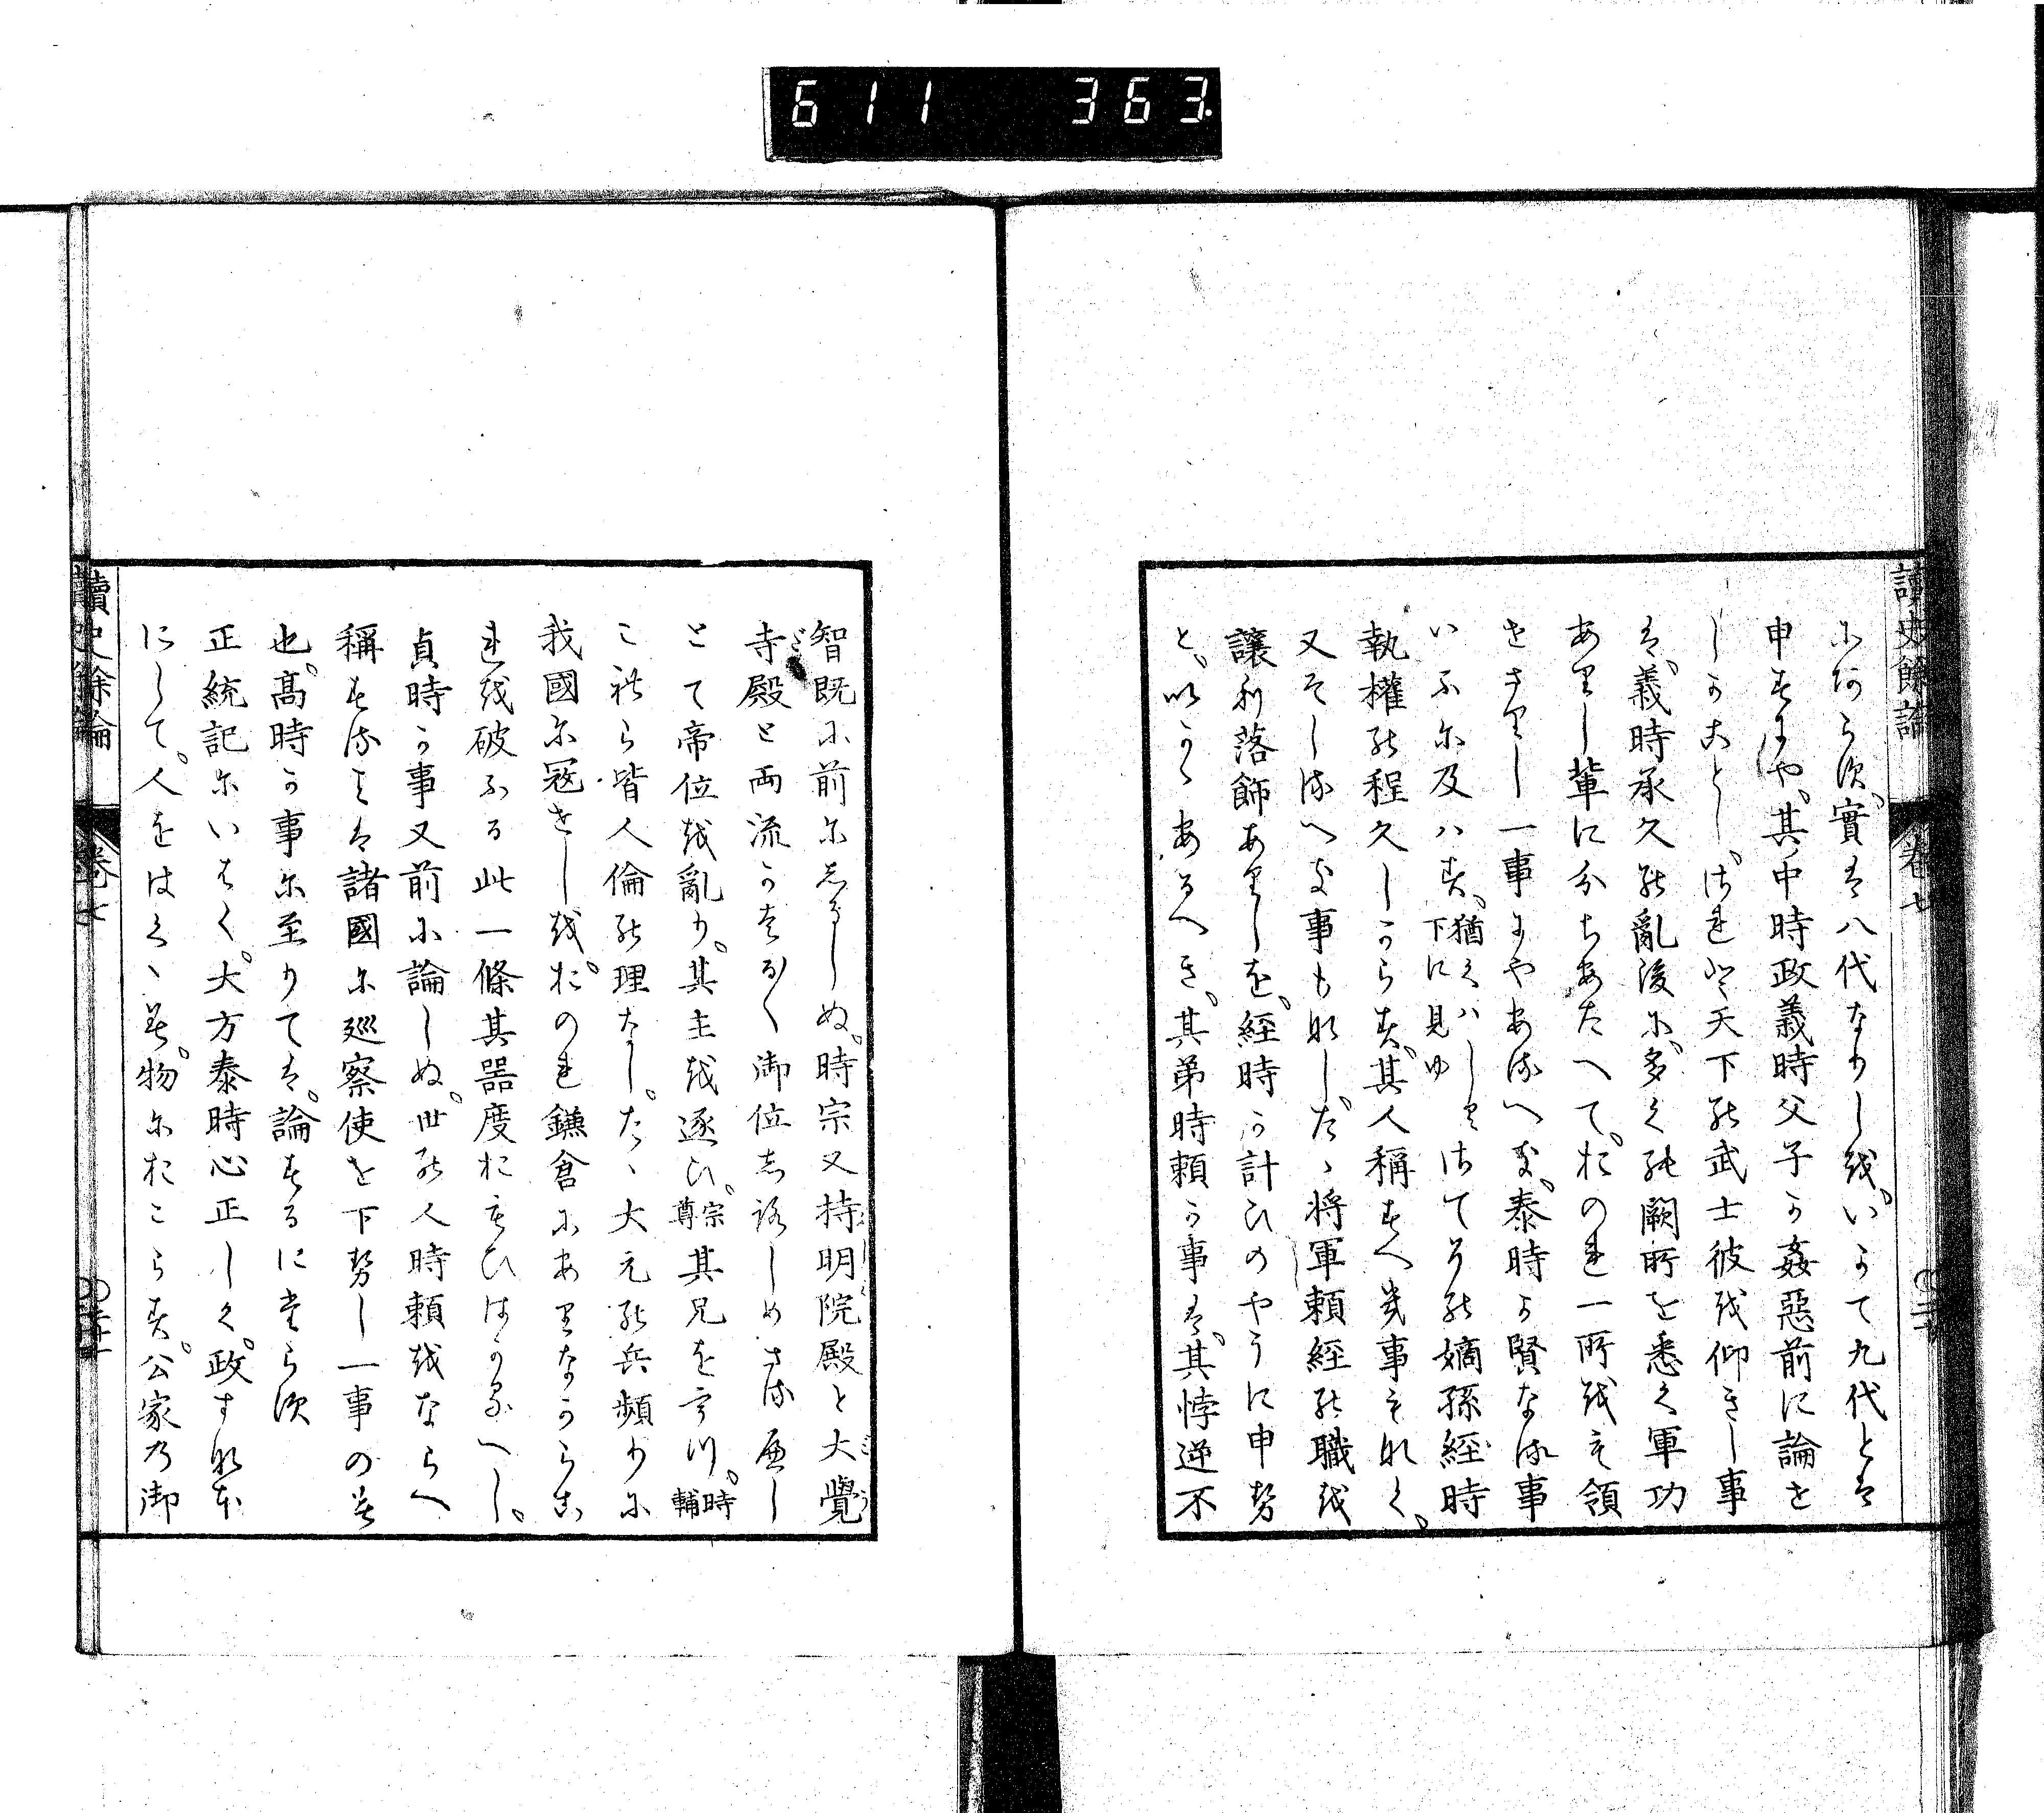 611 363.
讀史餘論 卷七
にあらす。實は八代なりしを。いかて九代とは
申すにや。其中時政義時父子か姦惡前に論せ
しかことし。されと天下の武士彼を仰きし事
は。義時承久の亂後に。多くの闕所を悉く軍功
ありし輩に分ちあたへて。おのれ一所をも領
せさりし一事にやあるへき。泰時か賢なる事
いふに及はす。猶くはしき下に見ゆ さてその嫡孫經時
執權の程久しからす。其人稱すへき事もなく。
又そしるへき事もなし。たゝ將軍頼經の職を
譲り落飾ありしを。經時か計ひのやうに申せ
と。いかゝあるへき。其弟時頼か事は。其悖逆不
智既に前にしるしぬ。時宗又持明院殿と大覺
寺殿と両流かはる〱御位しろしめさるへし
とて帝位を亂り。其主を逐ひ。宗尊其兄をうつ。時輔
これら皆人倫の理なし。たゝ大元の兵頻りに
我國に冦せしを。おのれ鎌倉にありなからこ
れを破ふる此一條其器度おもひはかるへし。
貞時か事又前に論しぬ。世の人時頼をならへ
稱するは諸國に廵察使を下せし一事のみ
也。高時か事に至りては。論するにたらす
正統記にいはく。大方泰時心正しく。政すなほ
にして。人をはくゝみ。物におこらす。公家の御
讀史餘論 卷七